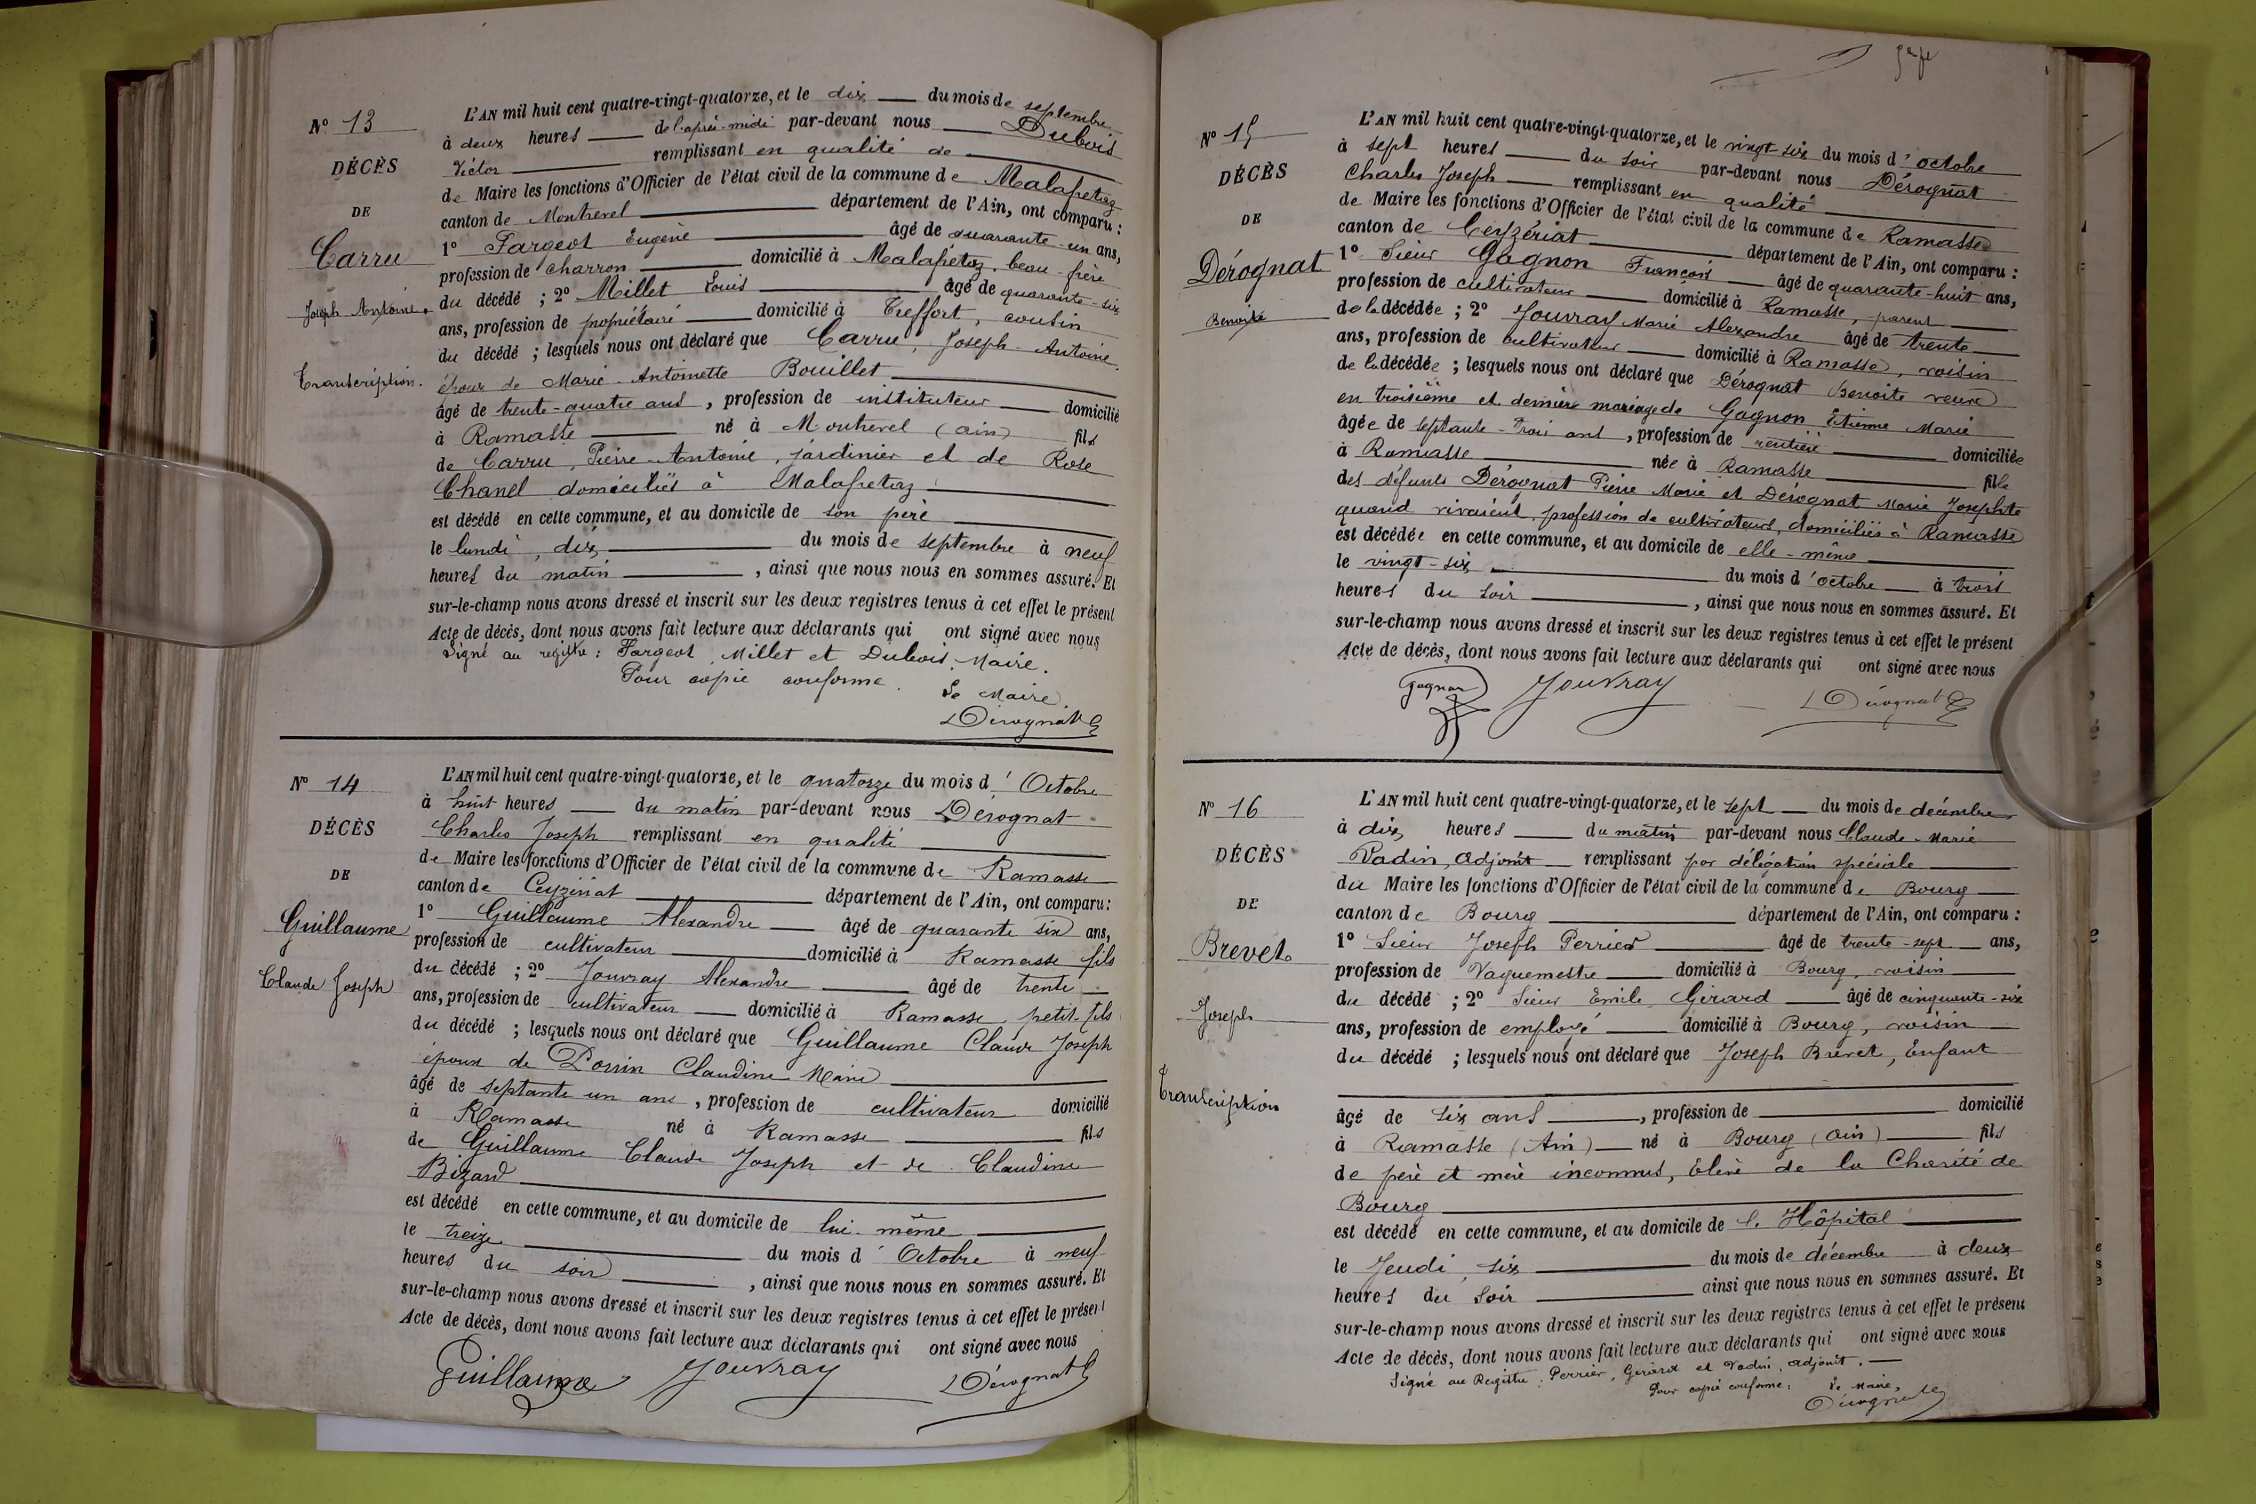 Nº 13
DÉCÈS
DE
Carru
Joseph Antoine.
Transcription.
L'AN mil huit cent quatre-vingt-quatorze, et le dix du mois de septembre
à deux heures de l'après-midi par-devant nous Dubois
Victor remplissant en qualité de
de Maire les fonctions d'Officier de l'état civil de la commune de Malafretaz
canton de Montrevel département de l'Ain, ont comparu :
1º Fargeot Eugène âgé de quarante-un ans,
profession de charron domicilié à Malafretaz, beau-frère
du décédé ; 2º Millet Louis âgé de quarante-six
ans, profession de propriétaire domicilié à Treffort, cousin
du décédé ; lesquels nous ont déclaré que Carru, Joseph-Antoine,
époux de Marie-Antoinette Bouillet
âgé de trente-quatre ans, profession de instituteur domicilié
à Ramasse né à Montrevel (ain) fils
de Carru, Pierre-Antoine, jardinier et de Rose
Chanel domiciliés à Malafretaz
est décédé en cette commune, et au domicile de son père
le lundi, dix du mois de septembre à neuf
heures du matin, ainsi que nous nous en sommes assuré. Et
sur-le-champ nous avons dressé et inscrit sur les deux registres tenus à cet effet le présent
Acte de décès, dont nous avons fait lecture aux déclarants qui ont signé avec nous
Signé au registre : Fargeot, Millet et Dubois, Maire.
Pour copie conforme.
Le Maire,
Dérognat
Nº 14
DÉCÈS
DE
Guillaume
Claude Joseph
L'AN mil huit cent quatre-vingt-quatorze, et le quatorze du mois d'Octobre
à huit heures du matin par-devant nous Dérognat
Charles Joseph remplissant en qualité
de Maire les fonctions d'Officier de l'état civil de la commune de Ramasse
canton de Ceyzériat département de l'Ain, ont comparu :
1º Guillaume Alexandre âgé de quarante six ans,
profession de cultivateur domicilié à Ramasse fils
du décédé ; 2º Jouvray Alexandre âgé de trente
ans, profession de cultivateur domicilié à Ramasse, petit-fils
du décédé ; lesquels nous ont déclaré que Guillaume Claude Joseph
époux de Perrin Claudine Marie
âgé de septante un ans, profession de cultivateur domicilié
à Ramasse né à Ramasse fils
de Guillaume Claude Joseph et de Claudine
Bizard
est décédé en cette commune, et au domicile de lui-même
le treize du mois d'Octobre à neuf
heures du soir, ainsi que nous nous en sommes assuré. Et
sur-le-champ nous avons dressé et inscrit sur les deux registres tenus à cet effet le présent
Acte de décès, dont nous avons fait lecture aux déclarants qui ont signé avec nous
Guillaume Jouvray Dérognat
Nº 15
DÉCÈS
DE
Dérognat
Benoite
L'AN mil huit cent quatre-vingt-quatorze, et le vingt six du mois d'octobre
à sept heures du soir par-devant nous Dérognat
Charles Joseph remplissant en qualité
de Maire les fonctions d'Officier de l'état civil de la commune de Ramasse
canton de Ceyzériat département de l'Ain, ont comparu :
1º Sieur Gagnon François âgé de quarante-huit ans,
profession de cultivateur domicilié à Ramasse, parent
de la décédée ; 2º Jouvray Marie Alexandre âgé de trente
ans, profession de cultivateur domicilié à Ramasse, voisin
de la décédée ; lesquels nous ont déclaré que Dérognat Benoite veuve
en troisième et dernière mariage de Gagnon Etienne Marie
âgée de septante-trois ans, profession de rentière domiciliée
à Ramasse née à Ramasse fille
des défunts Dérognat Pierre Marie et Dérognat Marie Josephte
quand vivaient, profession de cultivateurs, domiciliés à Ramasse
est décédée en cette commune, et au domicile de elle-même
le vingt-six du mois d'octobre à trois
heures du soir, ainsi que nous nous en sommes assuré. Et
sur-le-champ nous avons dressé et inscrit sur les deux registres tenus à cet effet le présent
Acte de décès, dont nous avons fait lecture aux déclarants qui ont signé avec nous
Gagnon Jouvray Dérognat
Nº 16
DÉCÈS
DE
Brevet
Joseph
Transcription
L'AN mil huit cent quatre-vingt-quatorze, et le sept du mois de décembre
à dix heures du matin par-devant nous Claude-Marie
Vadin, adjoint remplissant par délégation spéciale
du Maire les fonctions d'Officier de l'état civil de la commune de Bourg
canton de Bourg département de l'Ain, ont comparu :
1º Sieur Joseph Perrier âgé de trente-sept ans,
profession de Vaguemestre domicilié à Bourg, voisin
du décédé ; 2º Sieur Emile Girard âgé de cinquante-six
ans, profession de employé domicilié à Bourg, voisin
du décédé ; lesquels nous ont déclaré que Joseph Brevet, Enfant
âgé de six ans, profession de domicilié
à Ramasse (Ain) né à Bourg (ain) fils
de père et mère inconnus, Elève de la Charité de
Bourg
est décédé en cette commune, et au domicile de l'Hôpital
le Jeudi, six du mois de décembre à deux
heures du soir ainsi que nous nous en sommes assuré. Et
sur-le-champ nous avons dressé et inscrit sur les deux registres tenus à cet effet le présent
Acte de décès, dont nous avons fait lecture aux déclarants qui ont signé avec nous
Signé au Registre : Perrier, Girard et Vadin, adjoint.
Pour copie conforme : Le Maire,
Dérognat